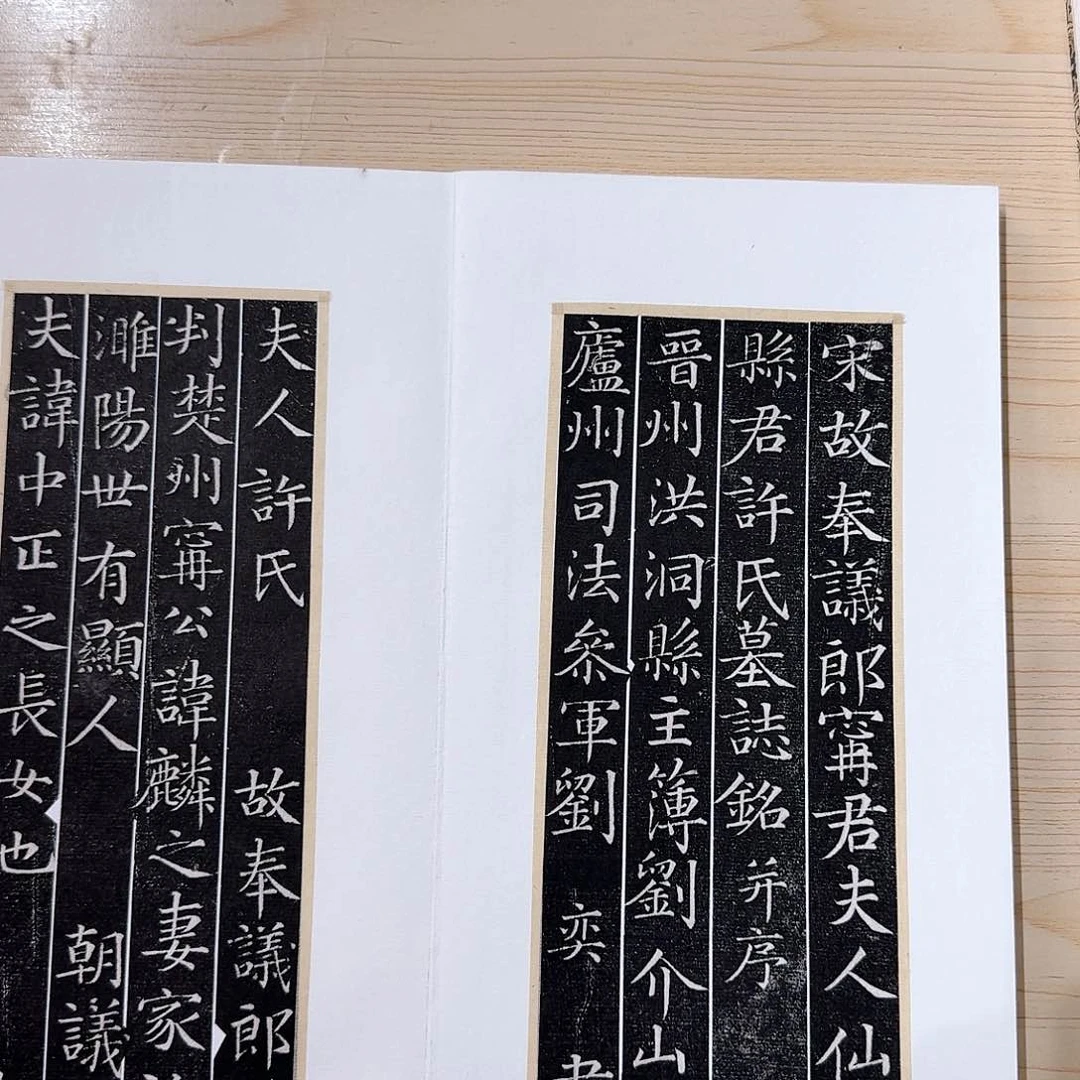 宋故奉議郎寗君夫人仙
縣君許氏墓誌銘并序
晉州洪洞縣主簿劉介山
廬州司法叅軍劉奕
夫人許氏故奉議郎
判楚州寗公諱麟之妻家
濉陽世有顯人朝議
夫諱中正之長女也